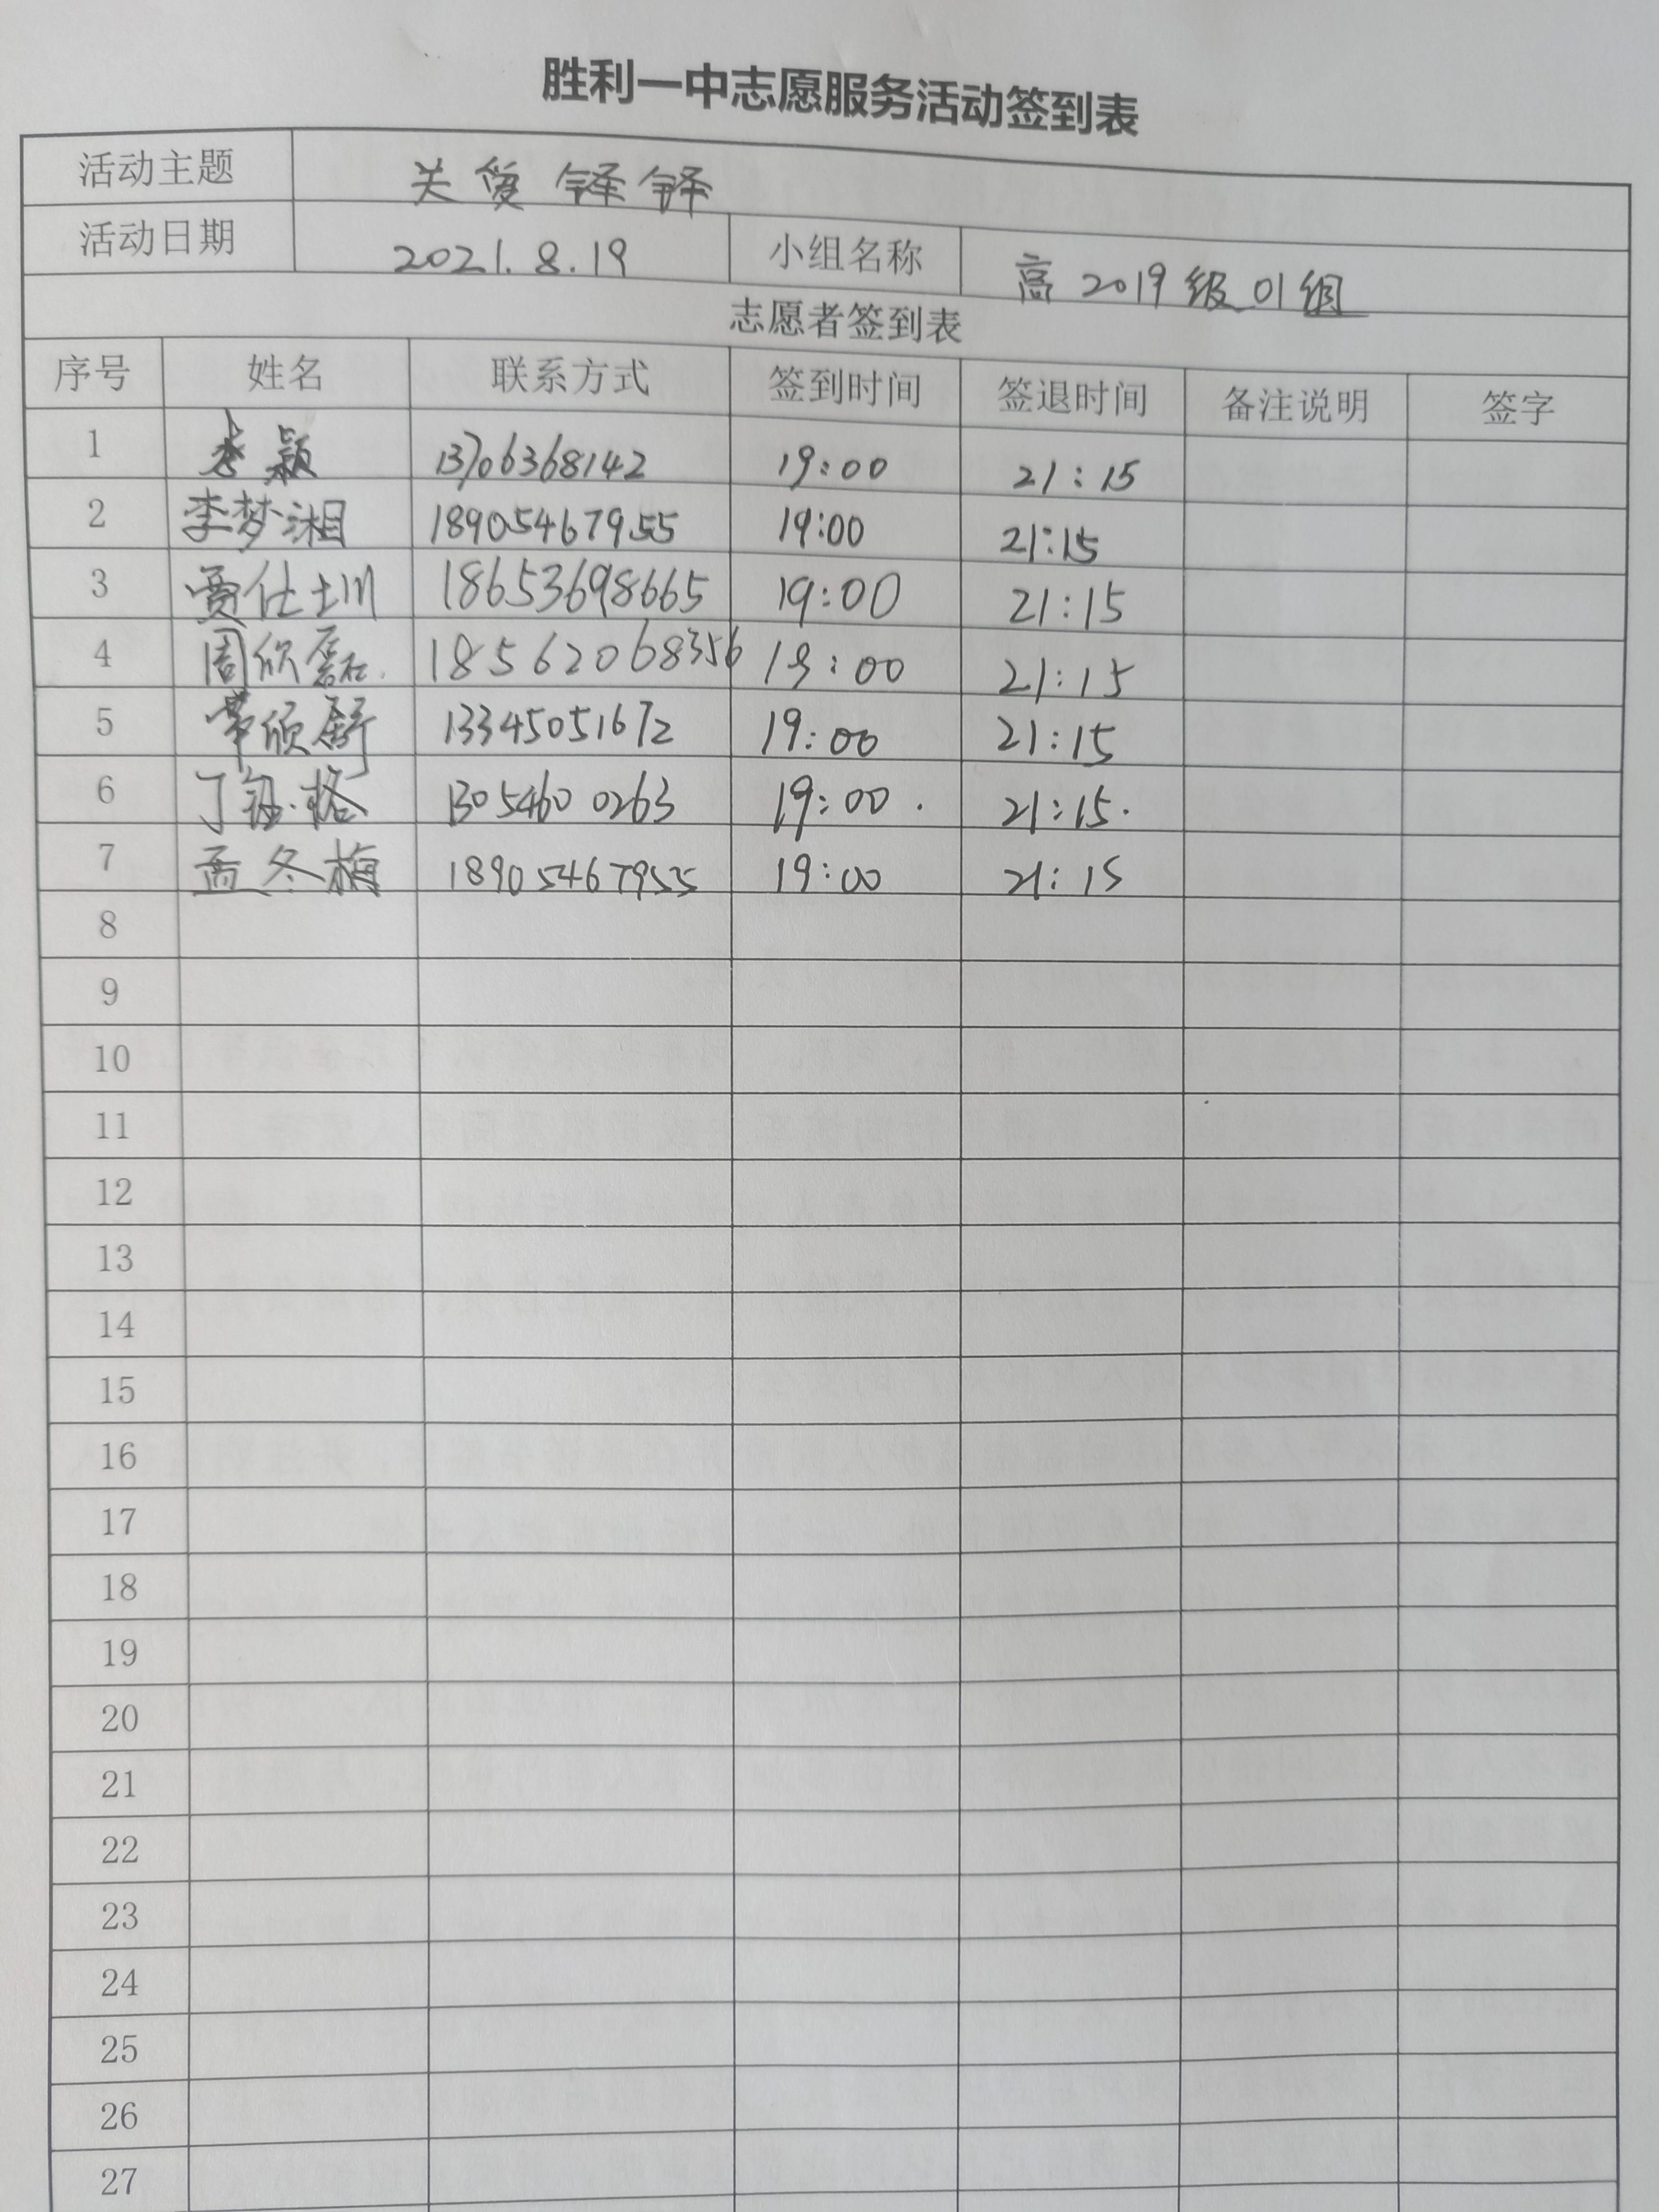 胜利一中志愿服务活动签到表
活动主题 关爱铎铎
活动日期 2021.8.19 小组名称 高2019级01组
志愿者签到表
序号 姓名 联系方式 签到时间 签退时间 备注说明 签字
1 李颖 13706368142 19:00 21:15
2 李梦湘 18905467955 19:00 21:15
3 贾仕圳 18653698665 19:00 21:15
4 周欣磊. 18562068356 19:00 21:15
5 常欣舒 13345051672 19:00 21:15
6 丁钰格 13054600263 19:00. 21:15.
7 孟冬梅 18905467955 19:00 21:15
8
9
10
11
12
13
14
15
16
17
18
19
20
21
22
23
24
25
26
27